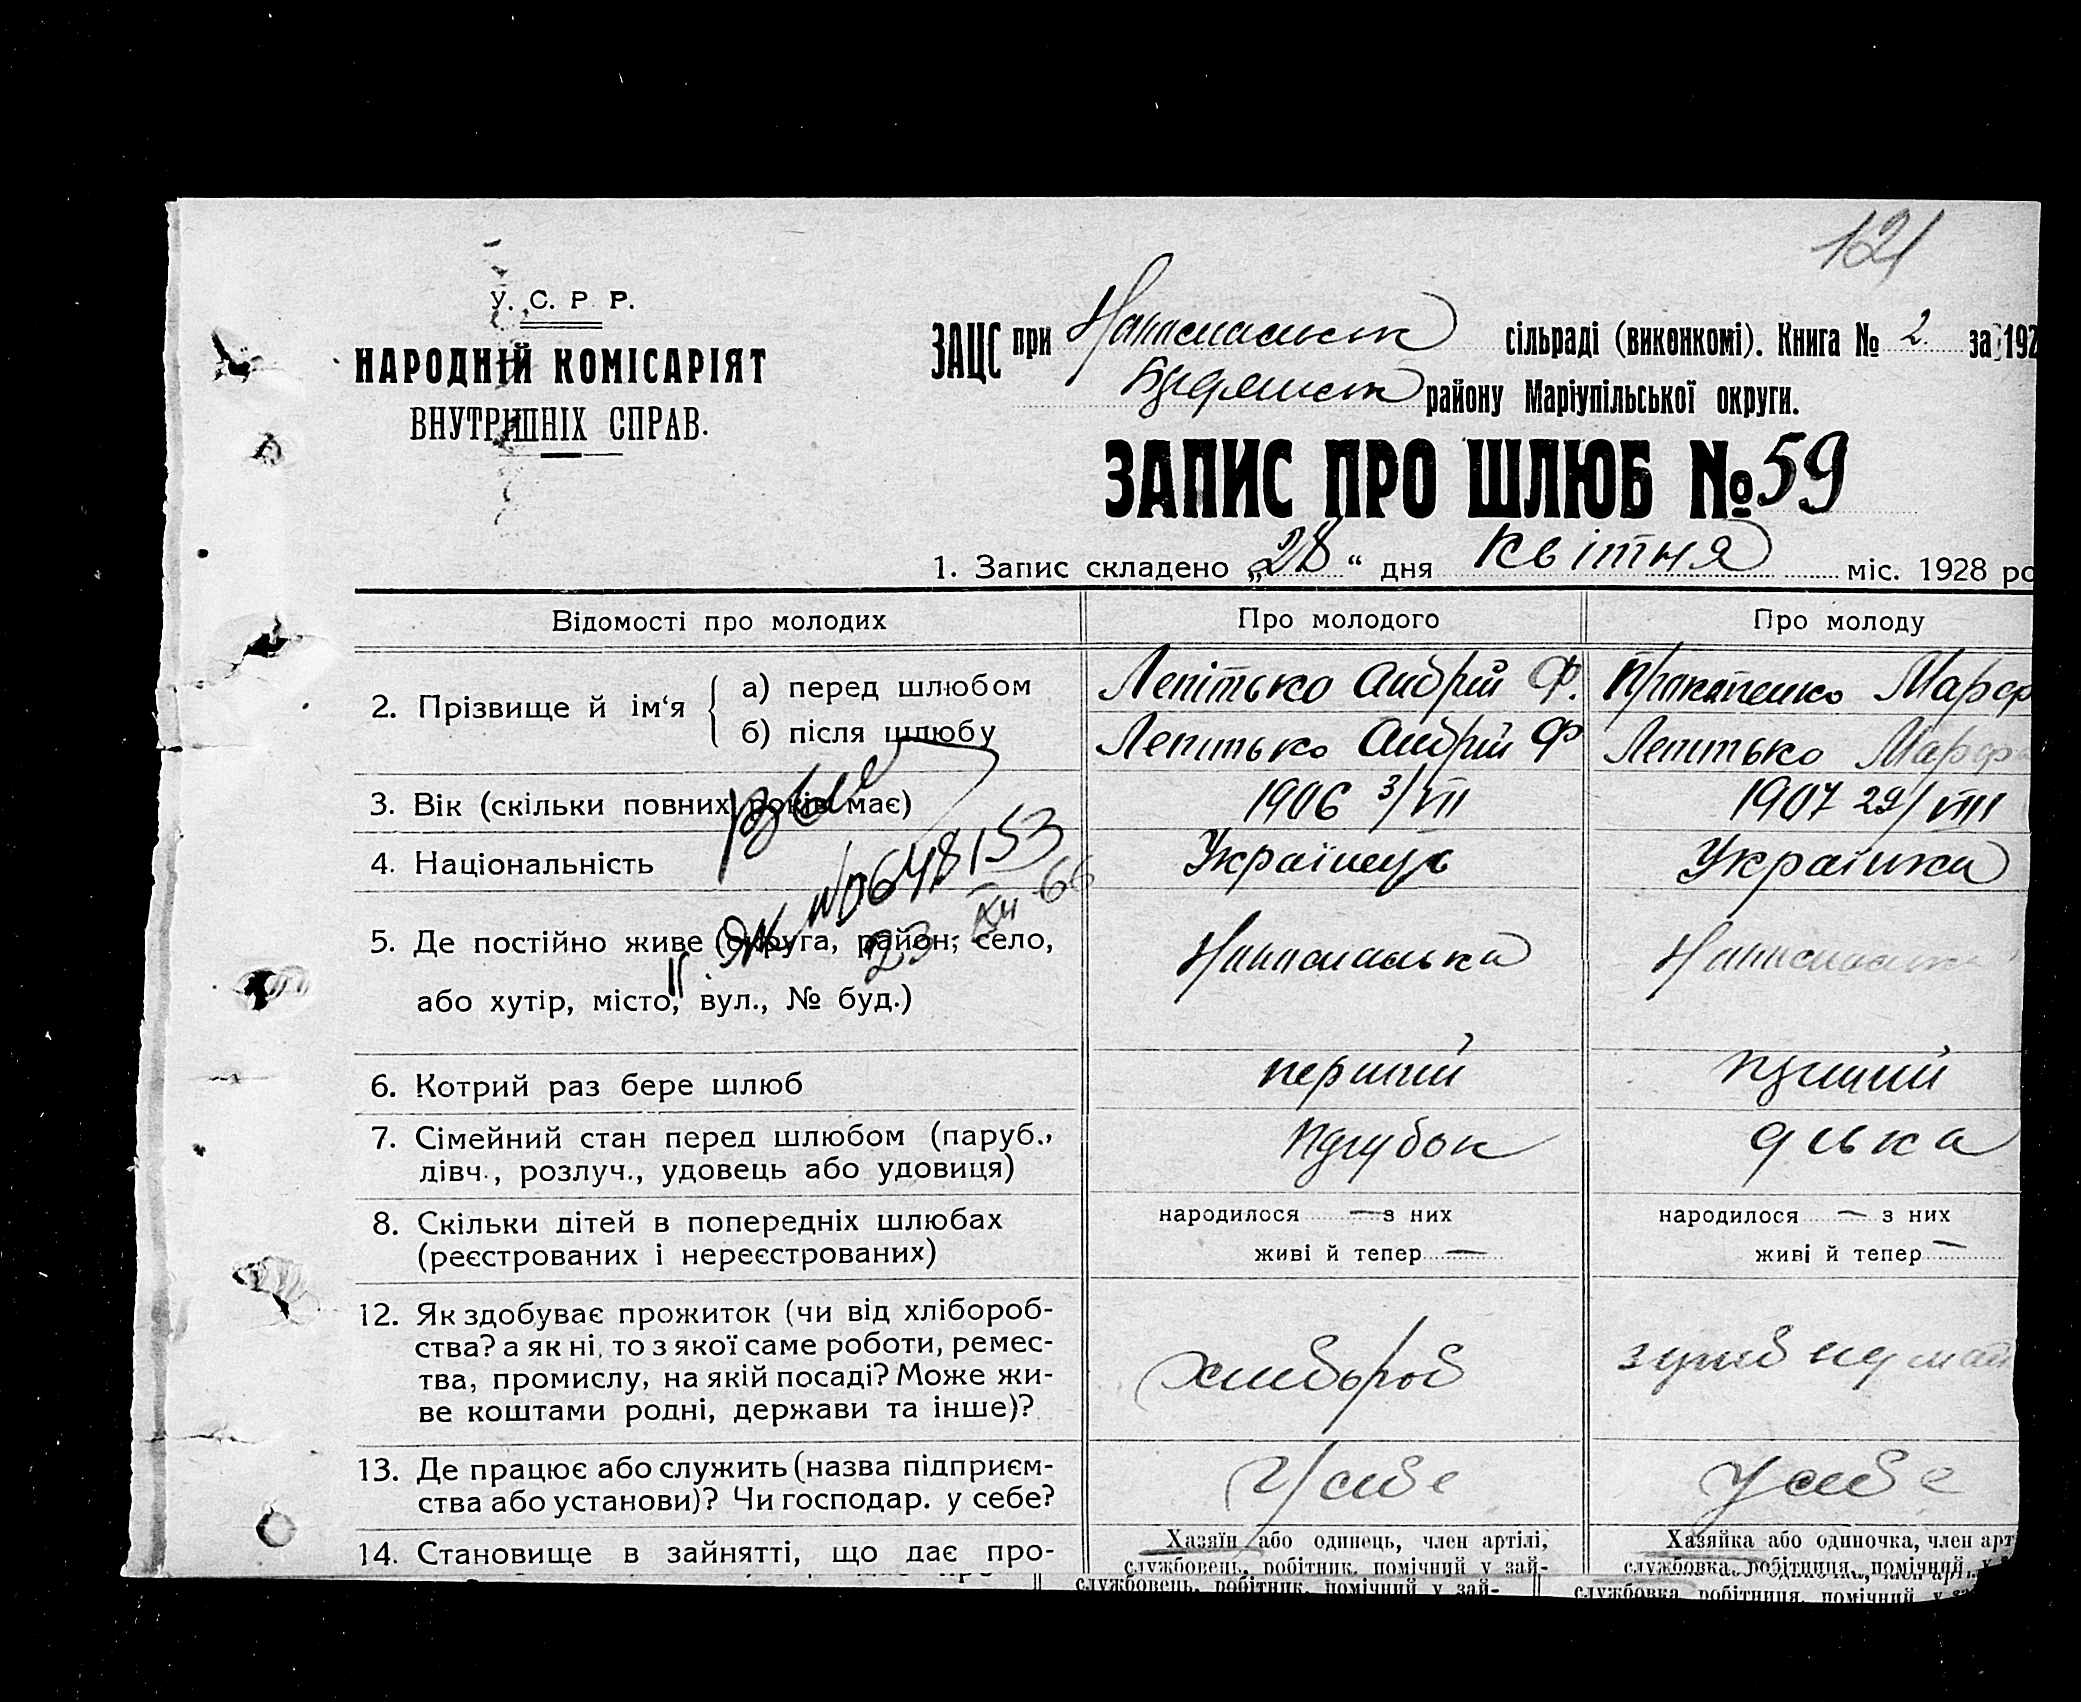 121
У. С. Р. Р.
НАРОДНІЙ КОМІСАРІЯТ
ВНУТРІШНІХ СПРАВ.
ЗАЦС при сільраді (виконкомі). Книга № 2. за 192
району Маріупільської округи.
ЗАПИС ПРО ШЛЮБ № 59
1. Запис складено „28“ дня Квітня міс. 1928 ро
Відомості про молодих Про молодого Про молоду
2. Прізвище й ім‘я
а) перед шлюбом Лепітько Андрій Ф.
б) після шлюбу Лепітько Андрій Ф Лепітько Марф
3. Вік (скільки повних років має) 1906 3/VII 1907 29/VIII
4. Національність Українець Українка
№ 648153
23 XII 66
5. Де постійно живе (округа, район, село,
або хутір, місто, вул., № буд.)
6. Котрий раз бере шлюб перший перший
7. Сімейний стан перед шлюбом (паруб., парубок дівка
дівч., розлуч., удовець або удовиця)
8. Скільки дітей в попередніх шлюбах народилося — з них народилося — з них
(реєстрованих і нереєстрованих) живі й тепер — живі й тепер —
12. Як здобуває прожиток (чи від хлібороб-
ства? а як ні, то з якої саме роботи, ремес-
тва, промислу, на якій посаді? Може жи- хлібороб
ве коштами родні, держави та інше)?
13. Де працює або служить (назва підприєм- У себе У себе
ства або установи)? Чи господар. у себе?
14. Становище в зайнятті, що дає про- Хазяїн або одинець, член артілі, Хазяйка або одиночка, член арт
службовець, робітник, помічний у зай- службовка, робітниця, помічний у з
службовець, робітник, помічний у зай- службовка, робітниця, помічний у за